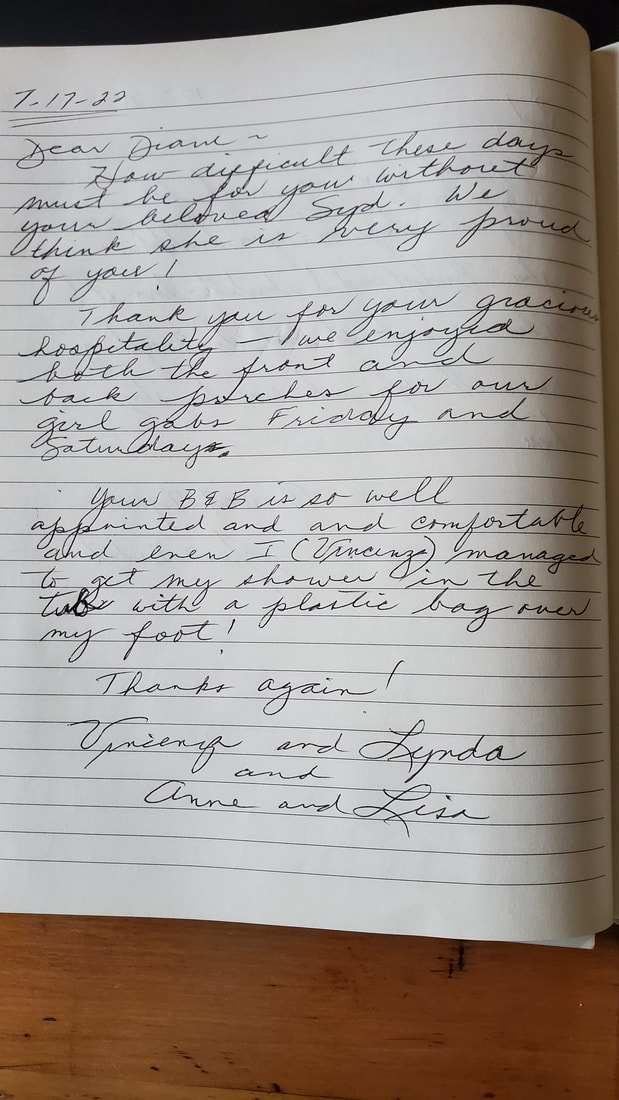 7-17-22
Dear Diane ~
How difficult these days
must be for you without
your beloved Syd. We
think she is very proud
of you!
Thank you for your gracious
hospitality — we enjoyed
both the front and
back porches for our
girl gabs Friday and
Saturday.
Your B&B is so well
appointed and and comfortable
and even I (Vincenza) managed
to get my shower in the
tub with a plastic bag over
my foot!
Thanks again!
Vincenza and Lynda
and
Anne and Lisa